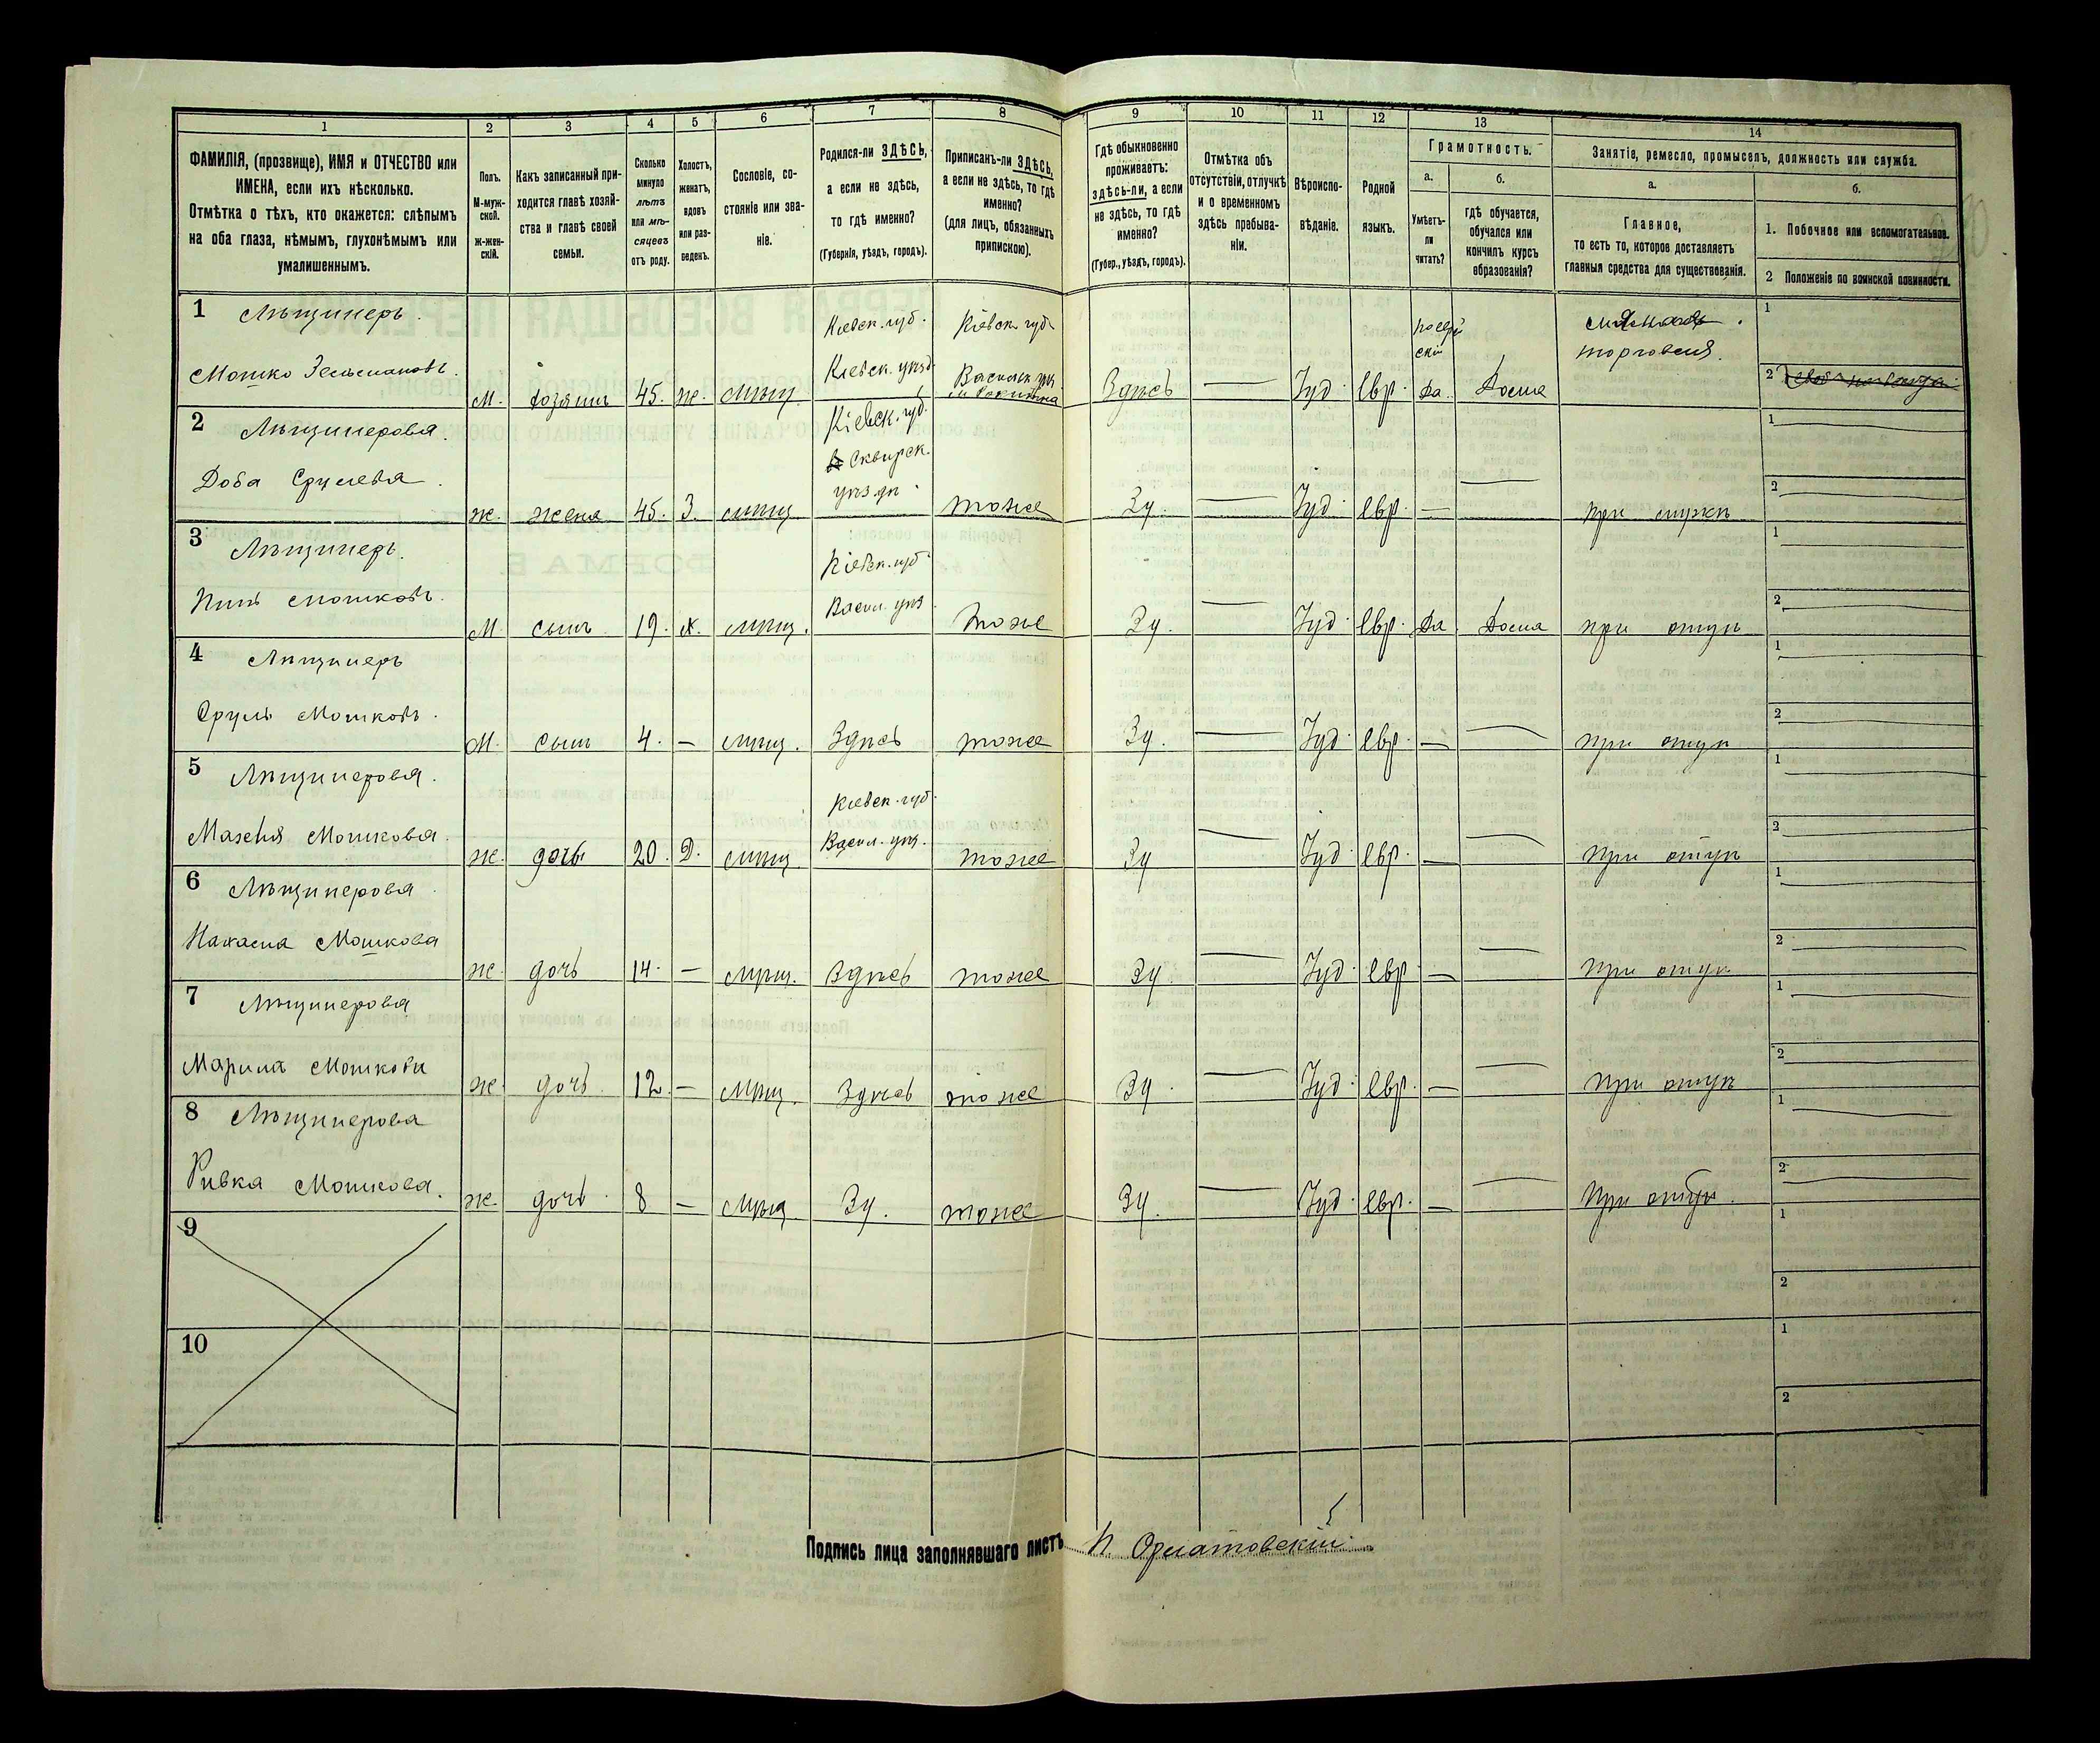 1 2 3 4 5 6 7 8 9 10 11 12 13 14
ФАМИЛІЯ, (прозвище), ИМЯ и ОТЧЕСТВО или
ИМЕНА, если ихъ нѣсколько.
Отмѣтка о тѣхъ, кто окажется: слѣпымъ
на оба глаза, нѣмымъ, глухонѣмымъ или
умалишеннымъ.
Полъ.
М-муж-
ской.
Ж-жен-
скій.
Какъ записанный при-
ходится главѣ хозяй-
ства и главѣ своей
семьи.
Сколько
минуло
лѣтъ
или мѣ-
сяцевъ
отъ роду.
Холостъ,
женатъ,
вдовъ
или раз-
веденъ.
Сословіе, со-
стояніе или зва-
ніе.
Родился-ли ЗДѢСЬ,
а если не здѣсь,
то гдѣ именно?
(Губернія, уѣздъ, городъ).
Приписанъ-ли ЗДѢСЬ,
а если не здѣсь, то гдѣ
именно?
(для лицъ, обязанныхъ
припискою).
Гдѣ обыкновенно
проживаетъ:
здѣсь-ли, а если
не здѣсь, то гдѣ
именно?
(Губер., уѣздъ, городъ).
Отмѣтка объ
отсутствіи, отлучкѣ
и о временномъ
здѣсь пребыва-
ніи.
Вѣроиспо-
вѣданіе.
Родной
языкъ.
Грамотность.
а.
Умѣетъ-
ли
читать?
б.
гдѣ обучается,
обучался или
кончилъ курсъ
образованія?
Занятіе, ремесло, промыселъ, должность или служба.
а.
Главное,
то есть то, которое доставляетъ
главныя средства для существованія.
б.
1. Побочное или вспомогательное.
2 Положеніе по воинской повинности.
1 Лѣщинеръ.
Мошко
М. хозяинъ 45. ж. мѣщ.
Кіевск. губ.
Кіевск. уѣзд.
Кіевск. губ.
Васильк. уѣз.
Здѣсь — Іуд. евр. Да. Дома
торговля.
2 Лѣщинерова.
Доба Срулева.
ж. жена 45. З. мѣщ.
Кіевск. губ.
Сквирск.
уѣздѣ.
тоже Зд. — Іуд. евр. — — при мужѣ
3 Лѣщинеръ.
Мошковъ.
М. сынъ 19. х. мѣщ.
Кіевск. губ.
Васил. уѣз.
тоже Зд. — Іуд. евр. Да. Дома при отцѣ
4 Лѣщинеръ
Сруль Мошковъ.
М. сынъ 4. — мѣщ. Здѣсь тоже Зд. — Іуд. евр. — — при отцѣ
5 Лѣщинерова.
Мошкова.
ж. дочь 20. Д. мѣщ.
Кіевск. губ.
Васил. уѣз.
тоже Зд — Іуд. евр. — — при отцѣ
6 Лѣщинерова.
Мошкова
ж. дочь 14. — мѣщ. Здѣсь тоже Зд. — Іуд. евр. — — при отцѣ
7 Лѣщинерова
Мошкова
ж. дочь. 12. — мѣщ. Здѣсь тоже Зд. — Іуд. евр. — — при отцѣ
8 Лѣщинерова
Ривка Мошкова.
ж. дочь. 8 — мѣщ Зд. тоже Зд. — Іуд. евр. — — при отцѣ.
9
10
Подпись лица заполнявшаго листъ